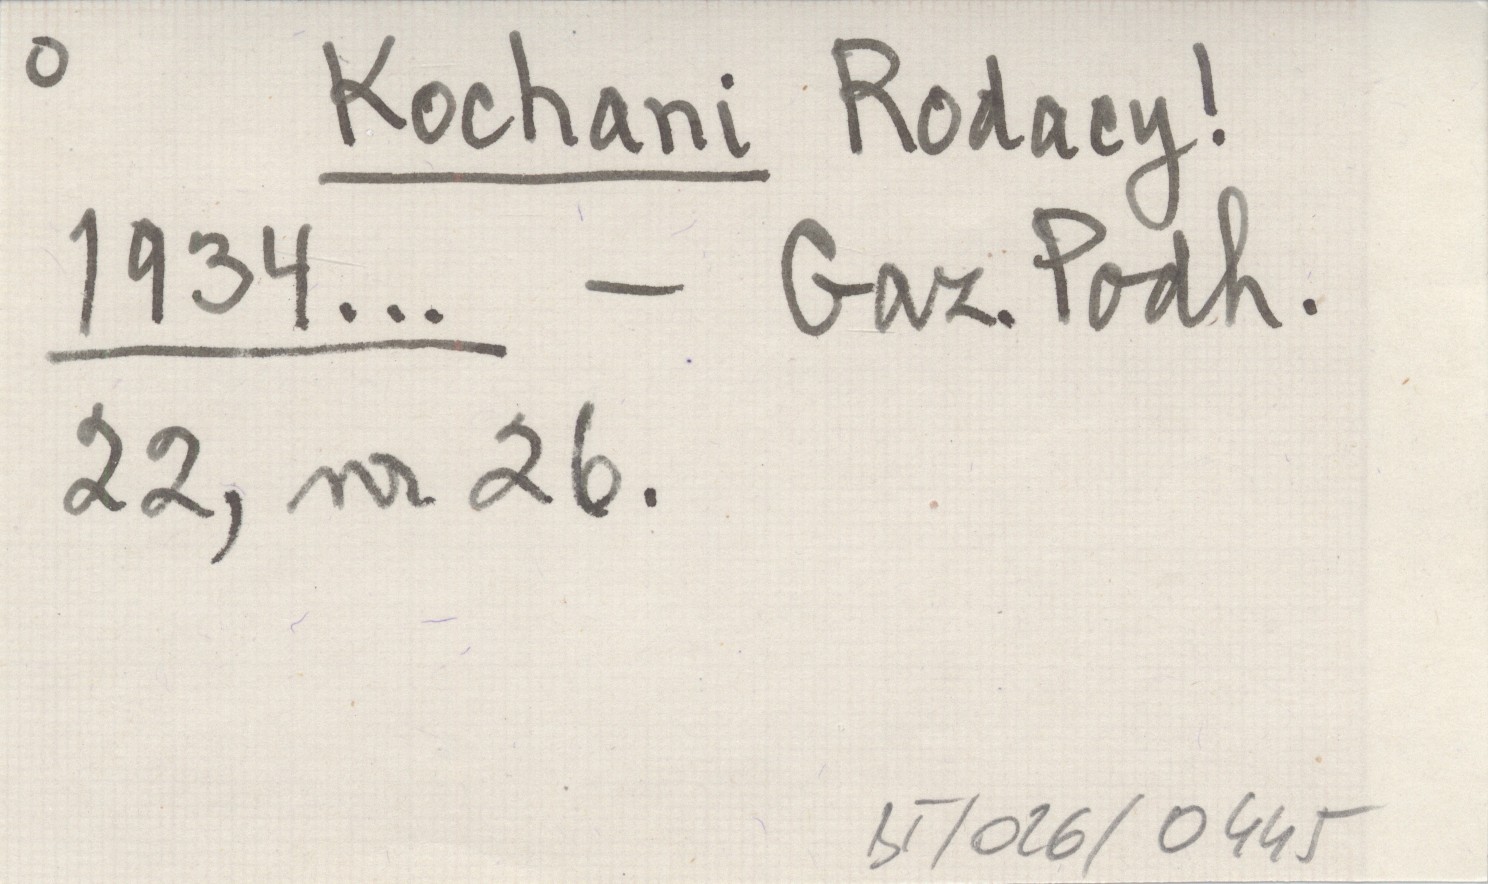 o Kochani Rodacy!
1934... — Gaz. Podh.
22, nr 26.
BT/026/0445